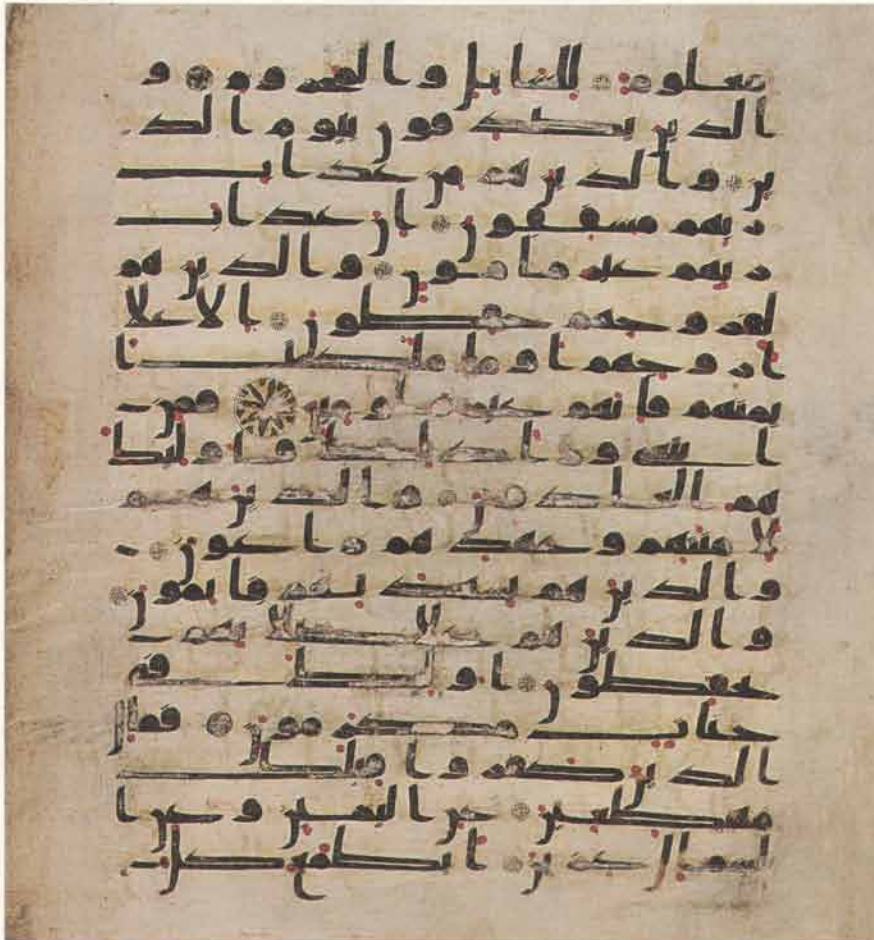 معلوم للسائل والمحروم و
الذين يصدقون بيوم الد
ين والذين هم من عذاب
ربهم مشفقون ان عذاب
ربهم غير مامون والذين هم
لفروجهم حفظون الا على
ازوجهم او ما ملكت ا
يمنهم فانهم غير ملومين فمن
ابتغى ورا ذلك فاولئك
هم العادون والذين هم
لامنتهم وعهدهم راعون
والذين هم بشهدتهم قايمون
والذين هم على صلاتهم يـ
حفظون اولئك في
جنات مكرمون فمال
الذين كفروا قبلك
مهطعين عن اليمين وعن ا
لشمال عزين ايطمع كل